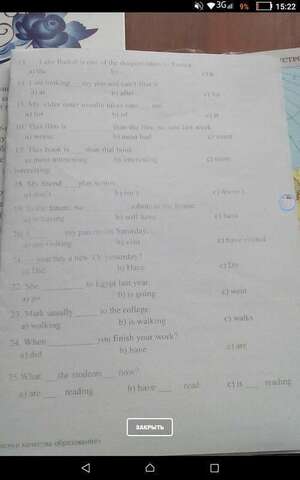 3G 9% 15:22
13. ___ Lake Baikal is one of the deepest lakes in Russia.
a) the b) - c) a
14. I am looking ___ my pen and can't find it.
a) at b) after c) for
15. My elder sister usually takes care ___ me.
a) for b) of c) at
16. This film is ___ than the film we saw last week.
a) worse b) more bad c) worst
17. This book is ___ than that book.
a) more interesting b) interesting c) most
interesting
18. My friend ___ play tennis.
a) don't b) isn't c) doesn't
19. In the future, we ___ robots in the house.
b) will have c) have
20. I ___ my parents on Saturday.
a) am visiting b) visit c) have visited
21. ___ you buy a new TV yesterday?
a) Did b) Have c) Do
22. She ___ to Egypt last year.
a) go b) is going c) went
23. Mark usually ___ to the college.
a) walking b) is walking c) walks
24. When ___ you finish your work?
a) did b) have c) are
25. What ___ the students ___ now?
a) are ___ reading b) have ___ read c) is ___ reading
ЗАКРЫТЬ
качества образования»